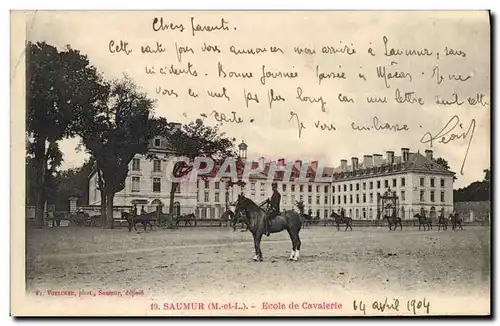 Chers parents.
Cette carte pour vous annoncer mon arrivée à Saumur, sans
incidents. Bonne journée passée à Mâcon. Je ne
vous en met pas plus long car une lettre suit cette
carte.
Je vous embrasse
CPARAMA
Fr. VOELCKER, phot., Saumur, déposé
19. SAUMUR (M.-et-L.). - Ecole de Cavalerie
14 avril 1904